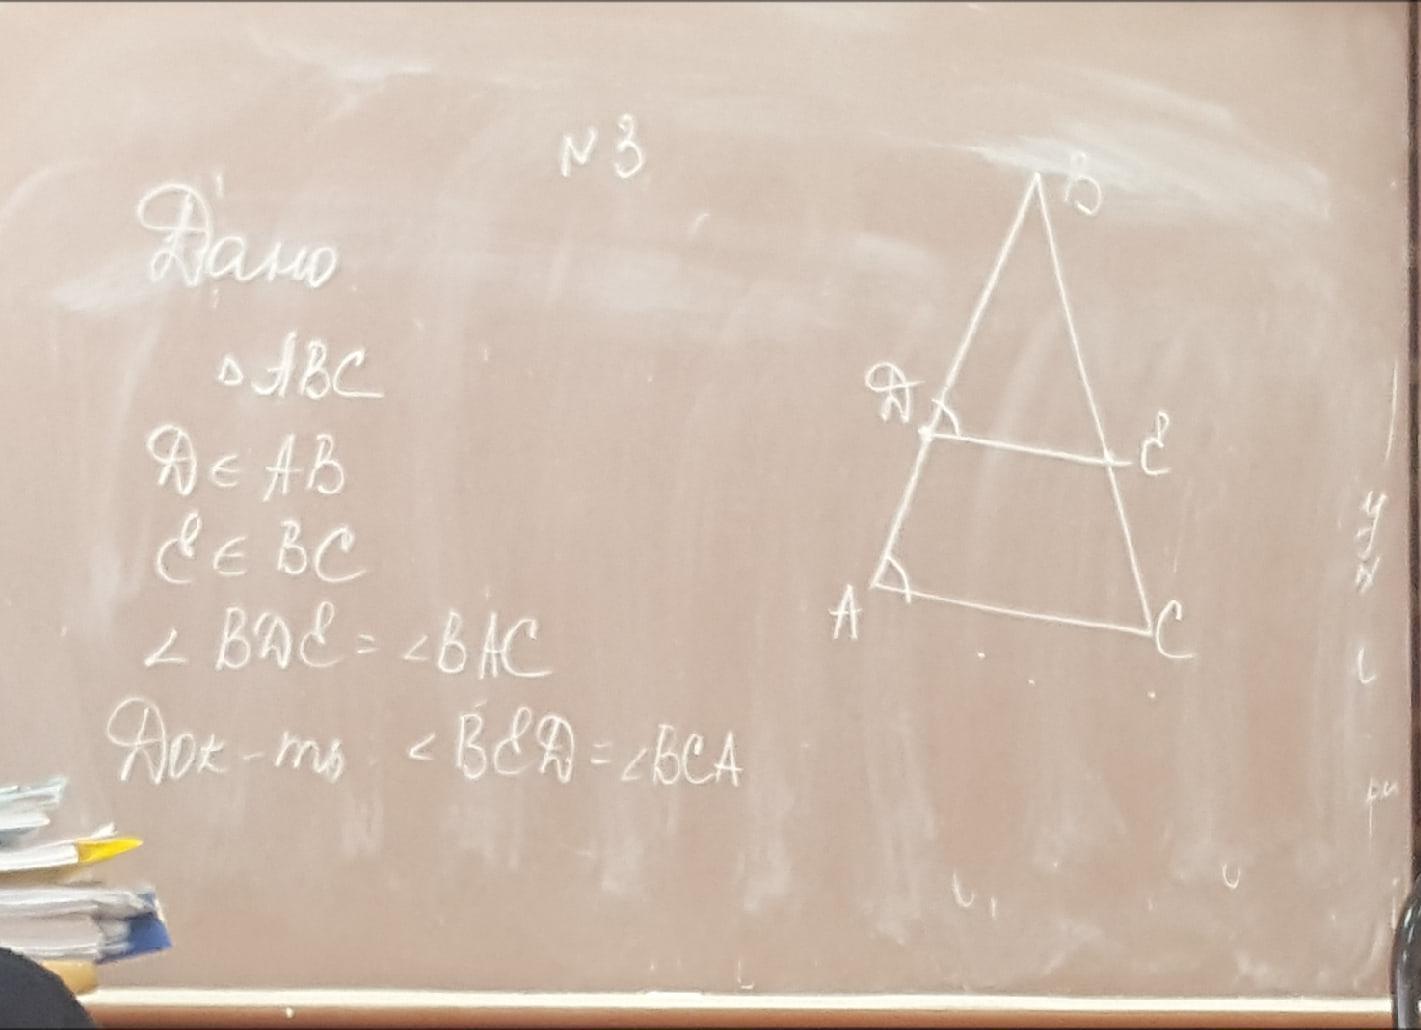 N 3
Дано
△ABC
D ∈ AB
E ∈ BC
∠ BDE = ∠BAC
Док-ть ∠ BED = ∠BCA
B
D
E
A
C